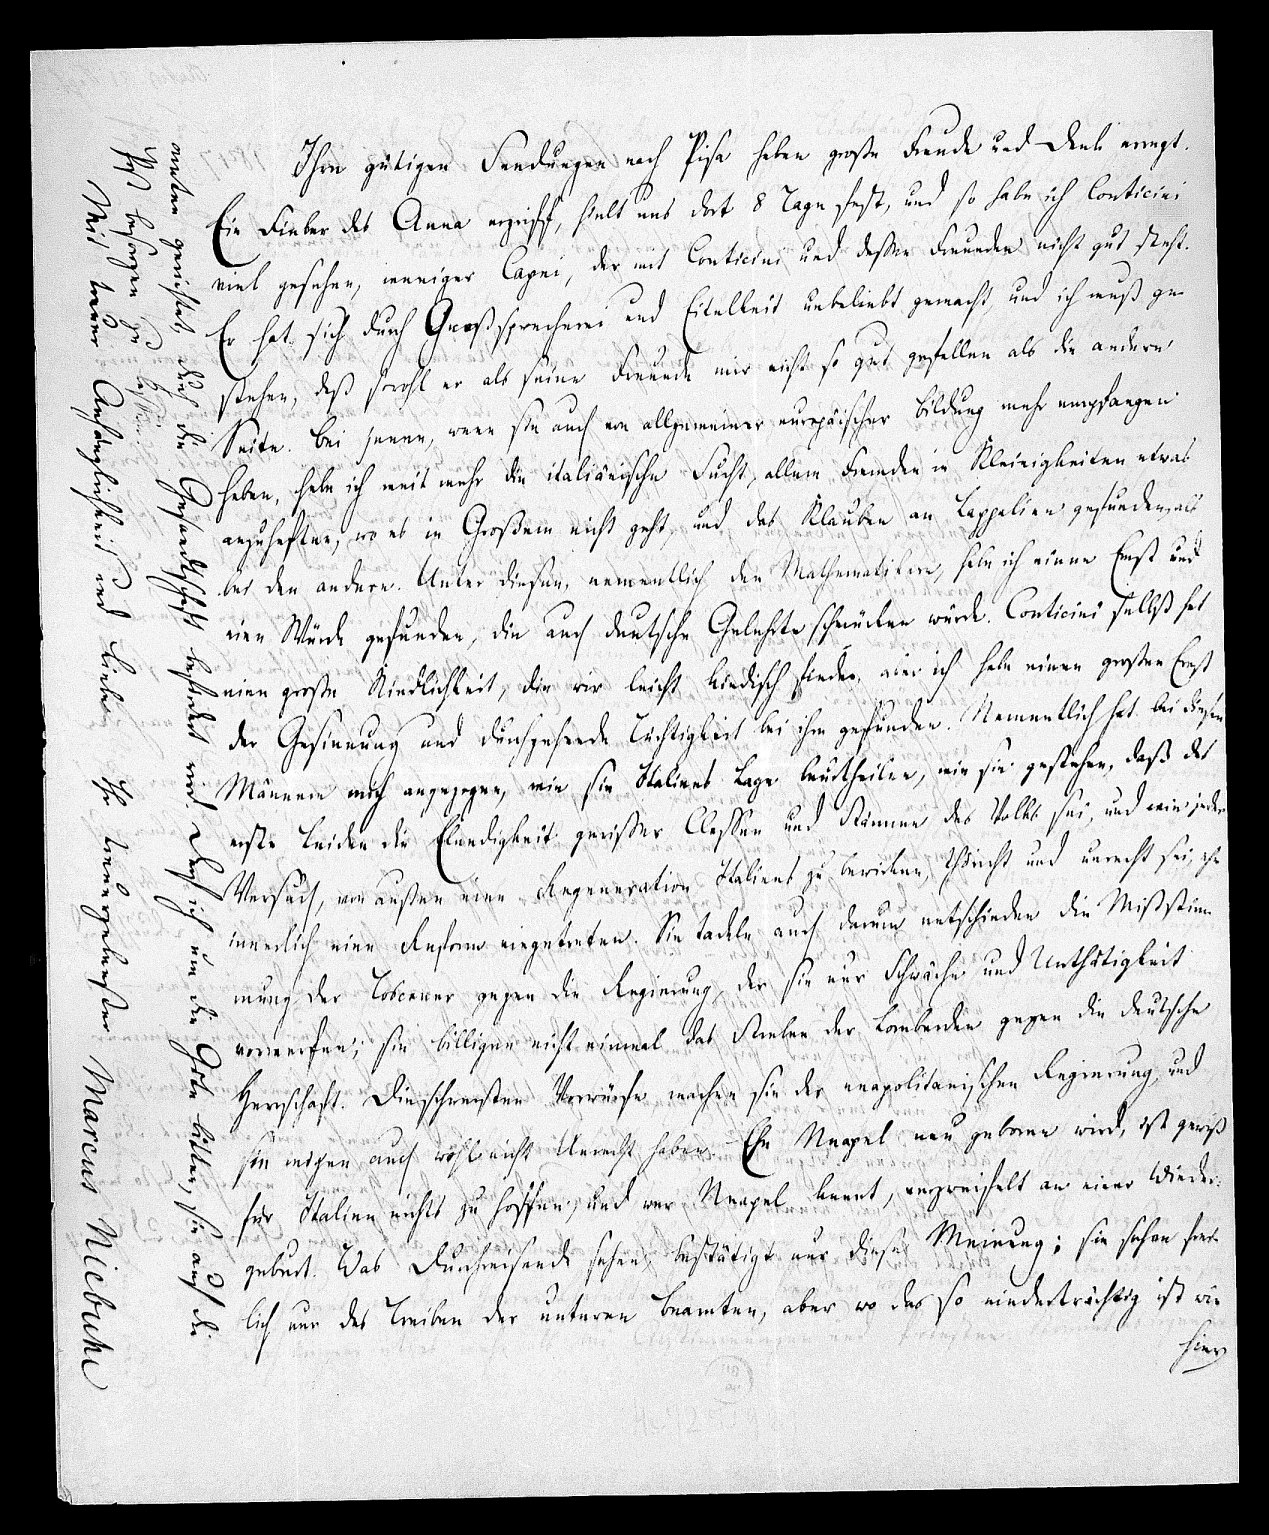 Ihre gütigen Sendungen nach Pisa haben große Freude und Dank erregt.
Ein Fieber das Anna ergriff, hielt uns dort 8 Tage fest, und so habe ich Conticini
viel gesehen, weniger Capei, der mit Conticini und dessen Freunden nicht gut steht.
Er hat sich durch Großsprecherei und Eitelkeit unbeliebt gemacht, und ich muß ge-
stehen, daß sowohl er als seine Freunde mir nicht so gut gefallen als die andere
Seite. Bei jenen, wenn sie auch von allgemeiner europäischer Bildung mehr empfangen
haben, habe ich weit mehr die italiänische Sucht, allem Fremden in Kleinigkeiten etwas
anzuheften, wo es in Großem nicht geht, und das Klauben an Lappalien gefunden, als
bei den andern. Unter diesen, namentlich den Mathematikern, habe ich einen Ernst und
eine Würde gefunden, die auch deutsche Gelehrte schmücken würde. Conticini selbst hat
eine große Kindlichkeit, die wir leicht kindisch finden, aber ich habe einen großen Ernst
der Gesinnung und durchgehende Tüchtigkeit bei ihm gefunden. Namentlich hat bei diesen
Männern mich angezogen, wie sie Italiens Lage beurtheilen, wie sie gestehen, daß das
erste Leiden die Elendigkeit gewisser Classen und Stämme des Volks sei, und wie jeder
Versuch, von außen eine Regeneration Italiens zu bewirken, thöricht und unrecht sei, ehe
innerlich eine Reform eingetreten. Sie tadeln auch darum entschieden die Mißstim-
mung der Toscaner gegen die Regierung, der sie nur Schwäche und Unthätigkeit
vorwerfen; sie billigen nicht einmal das Streben der Lombarden gegen die deutsche
Herrschaft. Die schwersten Vorwürfe machen sie der neapolitanischen Regierung, und
sie mögen auch wohl nicht Unrecht haben. Ehe Neapel neu geboren wird, ist gewiß
für Italien nichts zu hoffen; und wer Neapel kennt, verzweifelt an einer Wieder-
geburt. Was Durchreisende sehen, bestätigt nur diese Meinung; sie sehen frei-
lich nur das Treiben der unteren Beamten, aber wo das so niederträchtig ist wie
hier
die Gesandtschaft befördert wird, daß ich um die Güte bitte, sie auf die
Post besorgen zu lassen.
Mit treuer Anhänglichkeit und Liebe Ihr treuergebenster Marcus Niebuhr